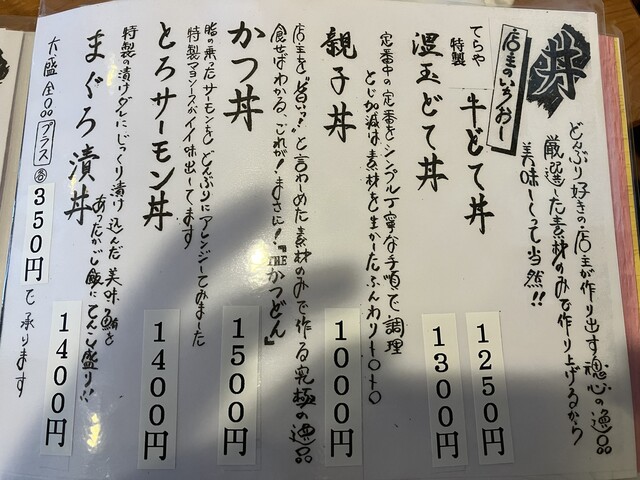 丼
どんぶり好きの店主が作り出す魂心の逸品
厳選した素材のみで作り上げるから
美味ーって当然!!
店主のいちおし
てらや
特製
牛どて丼
1250円
温玉どて丼
1300円
定番中の定番をシンプル丁寧な手順で調理
とじ加減は素材を生かしたふんわりトロトロ
親子丼
1000円
店主を"旨いっ!"と言わしめた素材のみで作る究極の逸品
食せばわかる、これが!まさに!『THEかつどん』
かつ丼
1500円
脂の乗ったサーモンをどんぶりにアレンジしてみました
特製マヨソースがイイ味出してます
とろサーモン丼
1400円
特製の漬けダレにじっくり漬け込んだ美味る鮪を
あったかご飯にてんこ盛り!!
まぐろ漬丼
1400円
大盛 プラス 350円で承ります